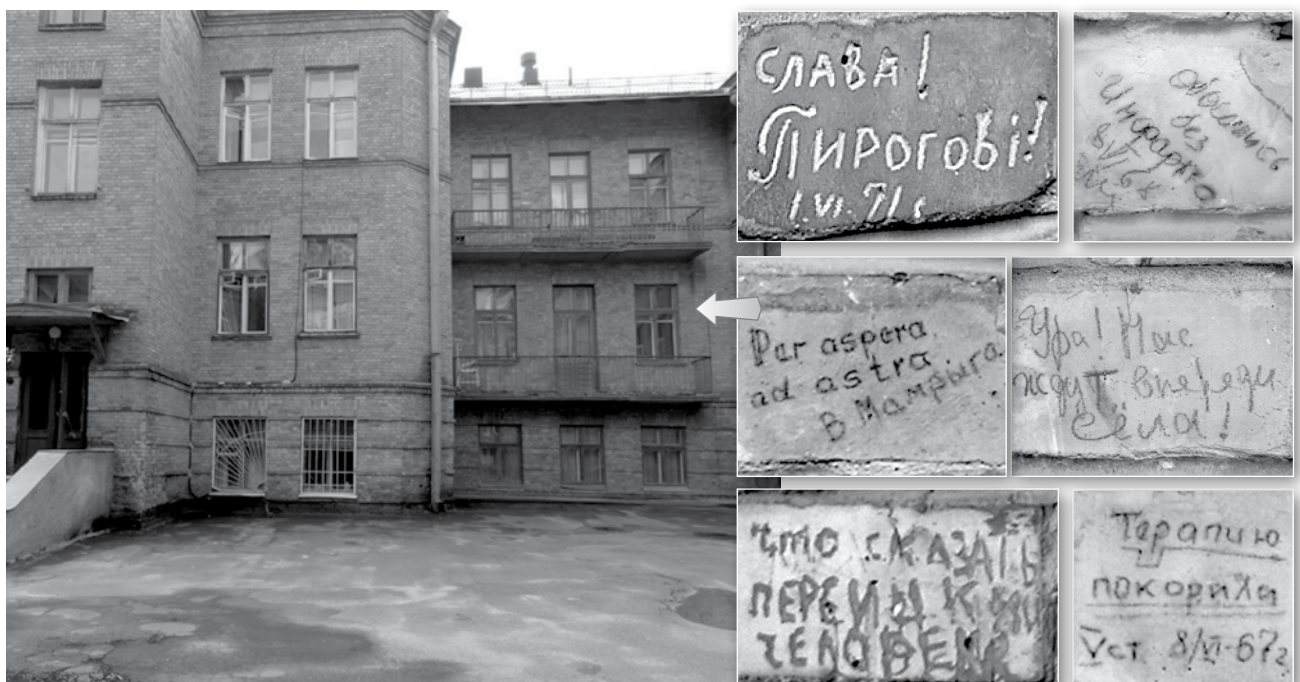 СЛАВА!
ПИРОГОВІ!
1.VI.71г
обошлись
без
Инфаркта
Per aspera
ad astra
В Мампыга
Ура! Нас
ждут впереди
сёла!
что СКАЗАЛЬ
ЧЕЛОВЕК
Терапию
покориха
V ст 8/VI-67г